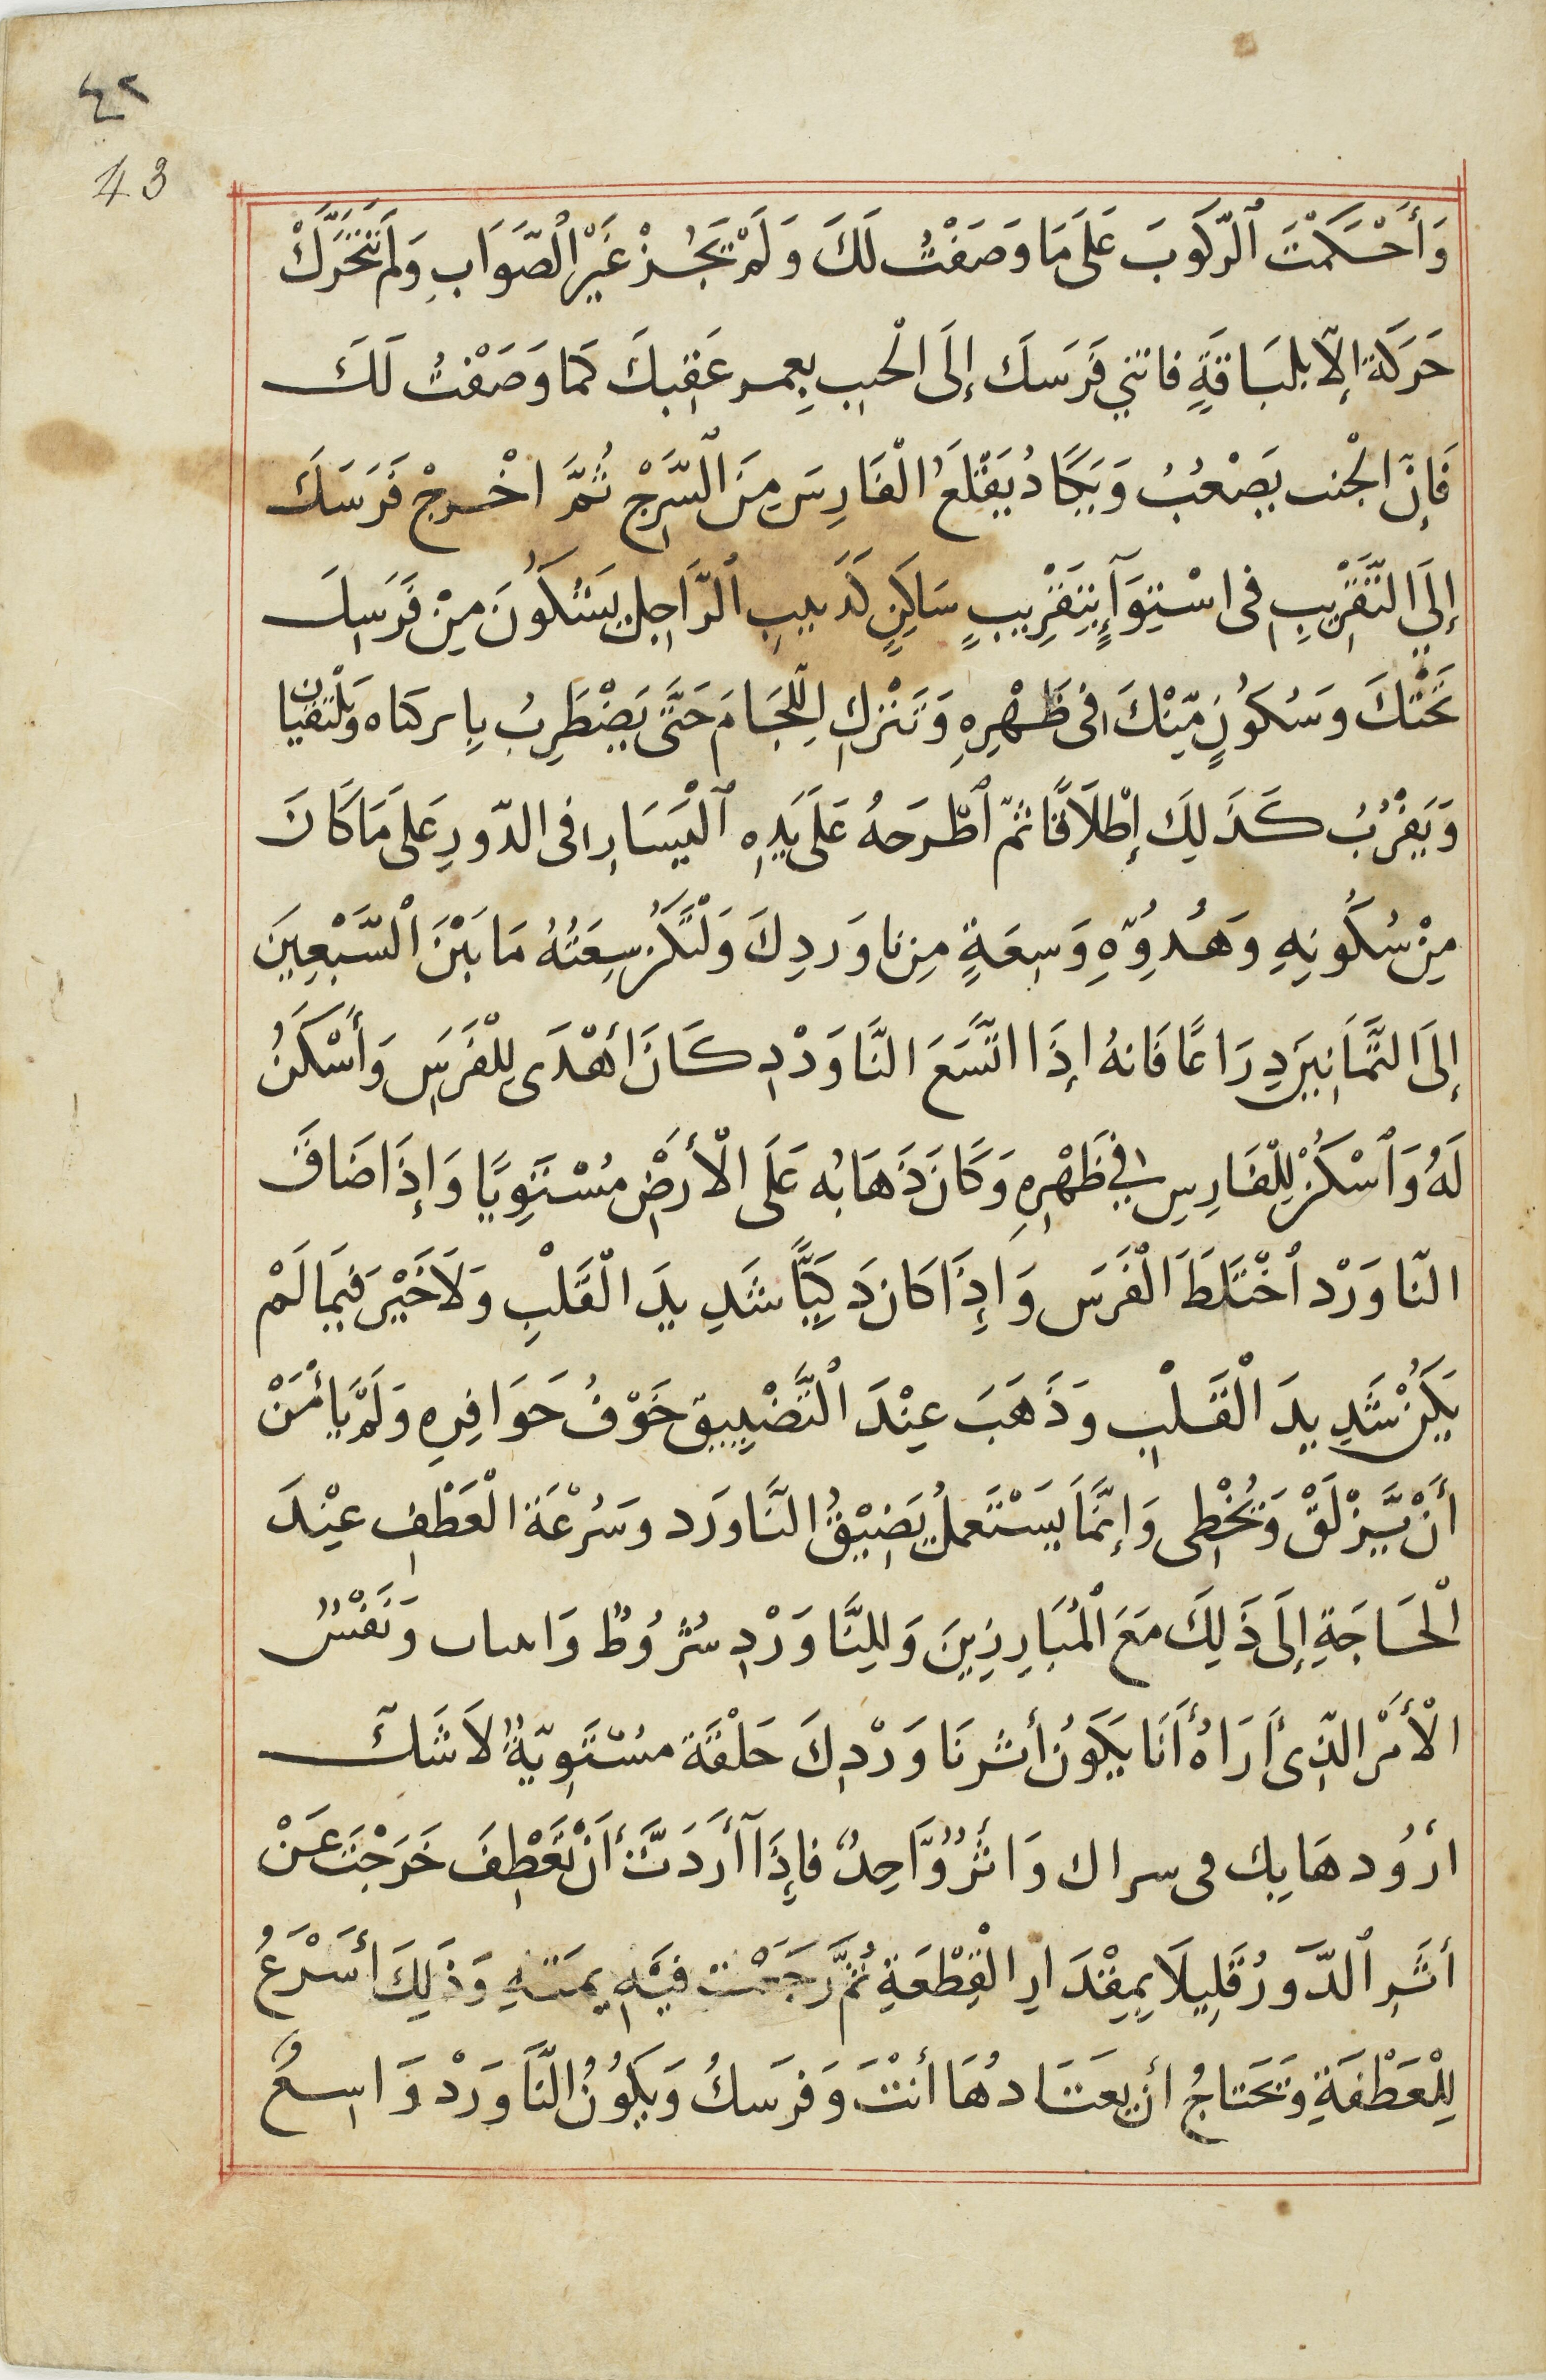 ٤٢
43
وَأَحْكَمْتَ ٱلرّكَوبَ عَلَى مَا وَصَفْتُ لَكَ وَلَمْ يَجُزْ غَيْرُ ٱلصَّوَابِ وَلَمْ تَتَحَرَّكْ
حَرَكَة إلاّ بلبَاقَةٍ فاثني فَرَسَك إلَى الْحبب بِعمر عَقِبكَ كَما وَصَفْتُ لَكَ
فَإنّ الْجنب يَصْعُبُ وَيَكَادُ يَقْلَعُ الْفَارِسَ مِنَ ٱلسَّرْجْ ثُمَّ اخْرجْ فَرَسَكَ
إلَى التَّقْرِيبِ فى اسْتِوَآءٍ بِتَقْرِيبٍ سَاكِنٍ كَدَبيبِ ٱلرَّاجِل بِسُكُونَ مِنْ فَرَسِكَ
تَحْتَكَ وَسُكُونٍ مِّنْكَ فى ظَهْرِهِ وَتَتْركِ لِلّجَامَ حَتَّى يَضْطَرِبُ بِاركتاه وَيَلْتَقيان
وَيَقْرُبُ كَذَلِكَ إطْلَاقًا ثمّ ٱطْرَحهُ عَلَى يَدِهِ ٱلْيَسَارِ فى الدّورِ عَلَى مَا كَانَ
مِنْ سُكُونِهِ وَهُدُوِّهِ وَسِعَةٍ مِن نا وَردِكَ وَلْتَكُنْ سِعَتُهُ مَا بَيْنَ ٱلسَّبْعِينَ
إلَى الثَّمَانِينَ دِرَاعًا فَانهُ إذَا اتَّسَعَ النَّاوَرْدِ كَانَ أهْدَى لِلْفَرَسِ وَأسْكَنُ
لَهُ وَٱسْكَنُ لِلْفَارِسِ في ظَهْرِهِ وَكَانَ ذَهَابُه عَلَى الْأرَضْ مُسْتَوِيًا وَإذَا ضَاقَ
النّاوَرْد ٱخْتَلَطَ الْفَرَس وَإذَا كَان ذَكِيًّا شَدِيدَ الْقَلْبِ وَلَا خَيْرَ فيمَا لَمْ
يَكُنْ شَدِيدَ الْقَلْبِ وَذَهَبَ عِنْدَ ٱلتَّضْيِيق خَوْفُ حَوَافِرِهِ وَلَمْ يَأمَنْ
أنْ يَّزْلَقْ وَيُخْطِى وَإنَّمَا يَسْتَعملُ يَضِيْقُ النَّاوَرَد وَسُرْعَة الْعَطْفِ عِنْدَ
الْحَاجَةِ إلَى ذَلِكَ مَعَ ٱلْمُبَارِزِينَ وَلِلنَّاوَرْدِ شُرُوطٌ وَاساب وَنَفْسُ
الْأمْر الذِى أرَاهُ أنَا يَكَونُ أثر نَاوَرْدِكَ حَلْقَة مسْتَوِيّةٌ لَا شَكَّ
ارُودهَا بِك فى سراك وَاثَرٌ وَّاحِدٌ فإذَا أرَدَتَّ أنْ تَعْطِفَ خَرَجْتَ عَنْ
أثَرِ ٱلدَّورُ قَلِيلَا بِمِقْدَارِ الْقِطْعَةِ ثُمَّ رَجَعْت فيَهِ يمَنتهِ وَذَلِكَ أسَرْعُ
لِلْعَطْفَةِ وَتَحَتاجُ أن يعَتَادُهَا أنْتَ وَفرَسَكُ وَيَكُونُ النَّاوَرْد وَاسِعٌ